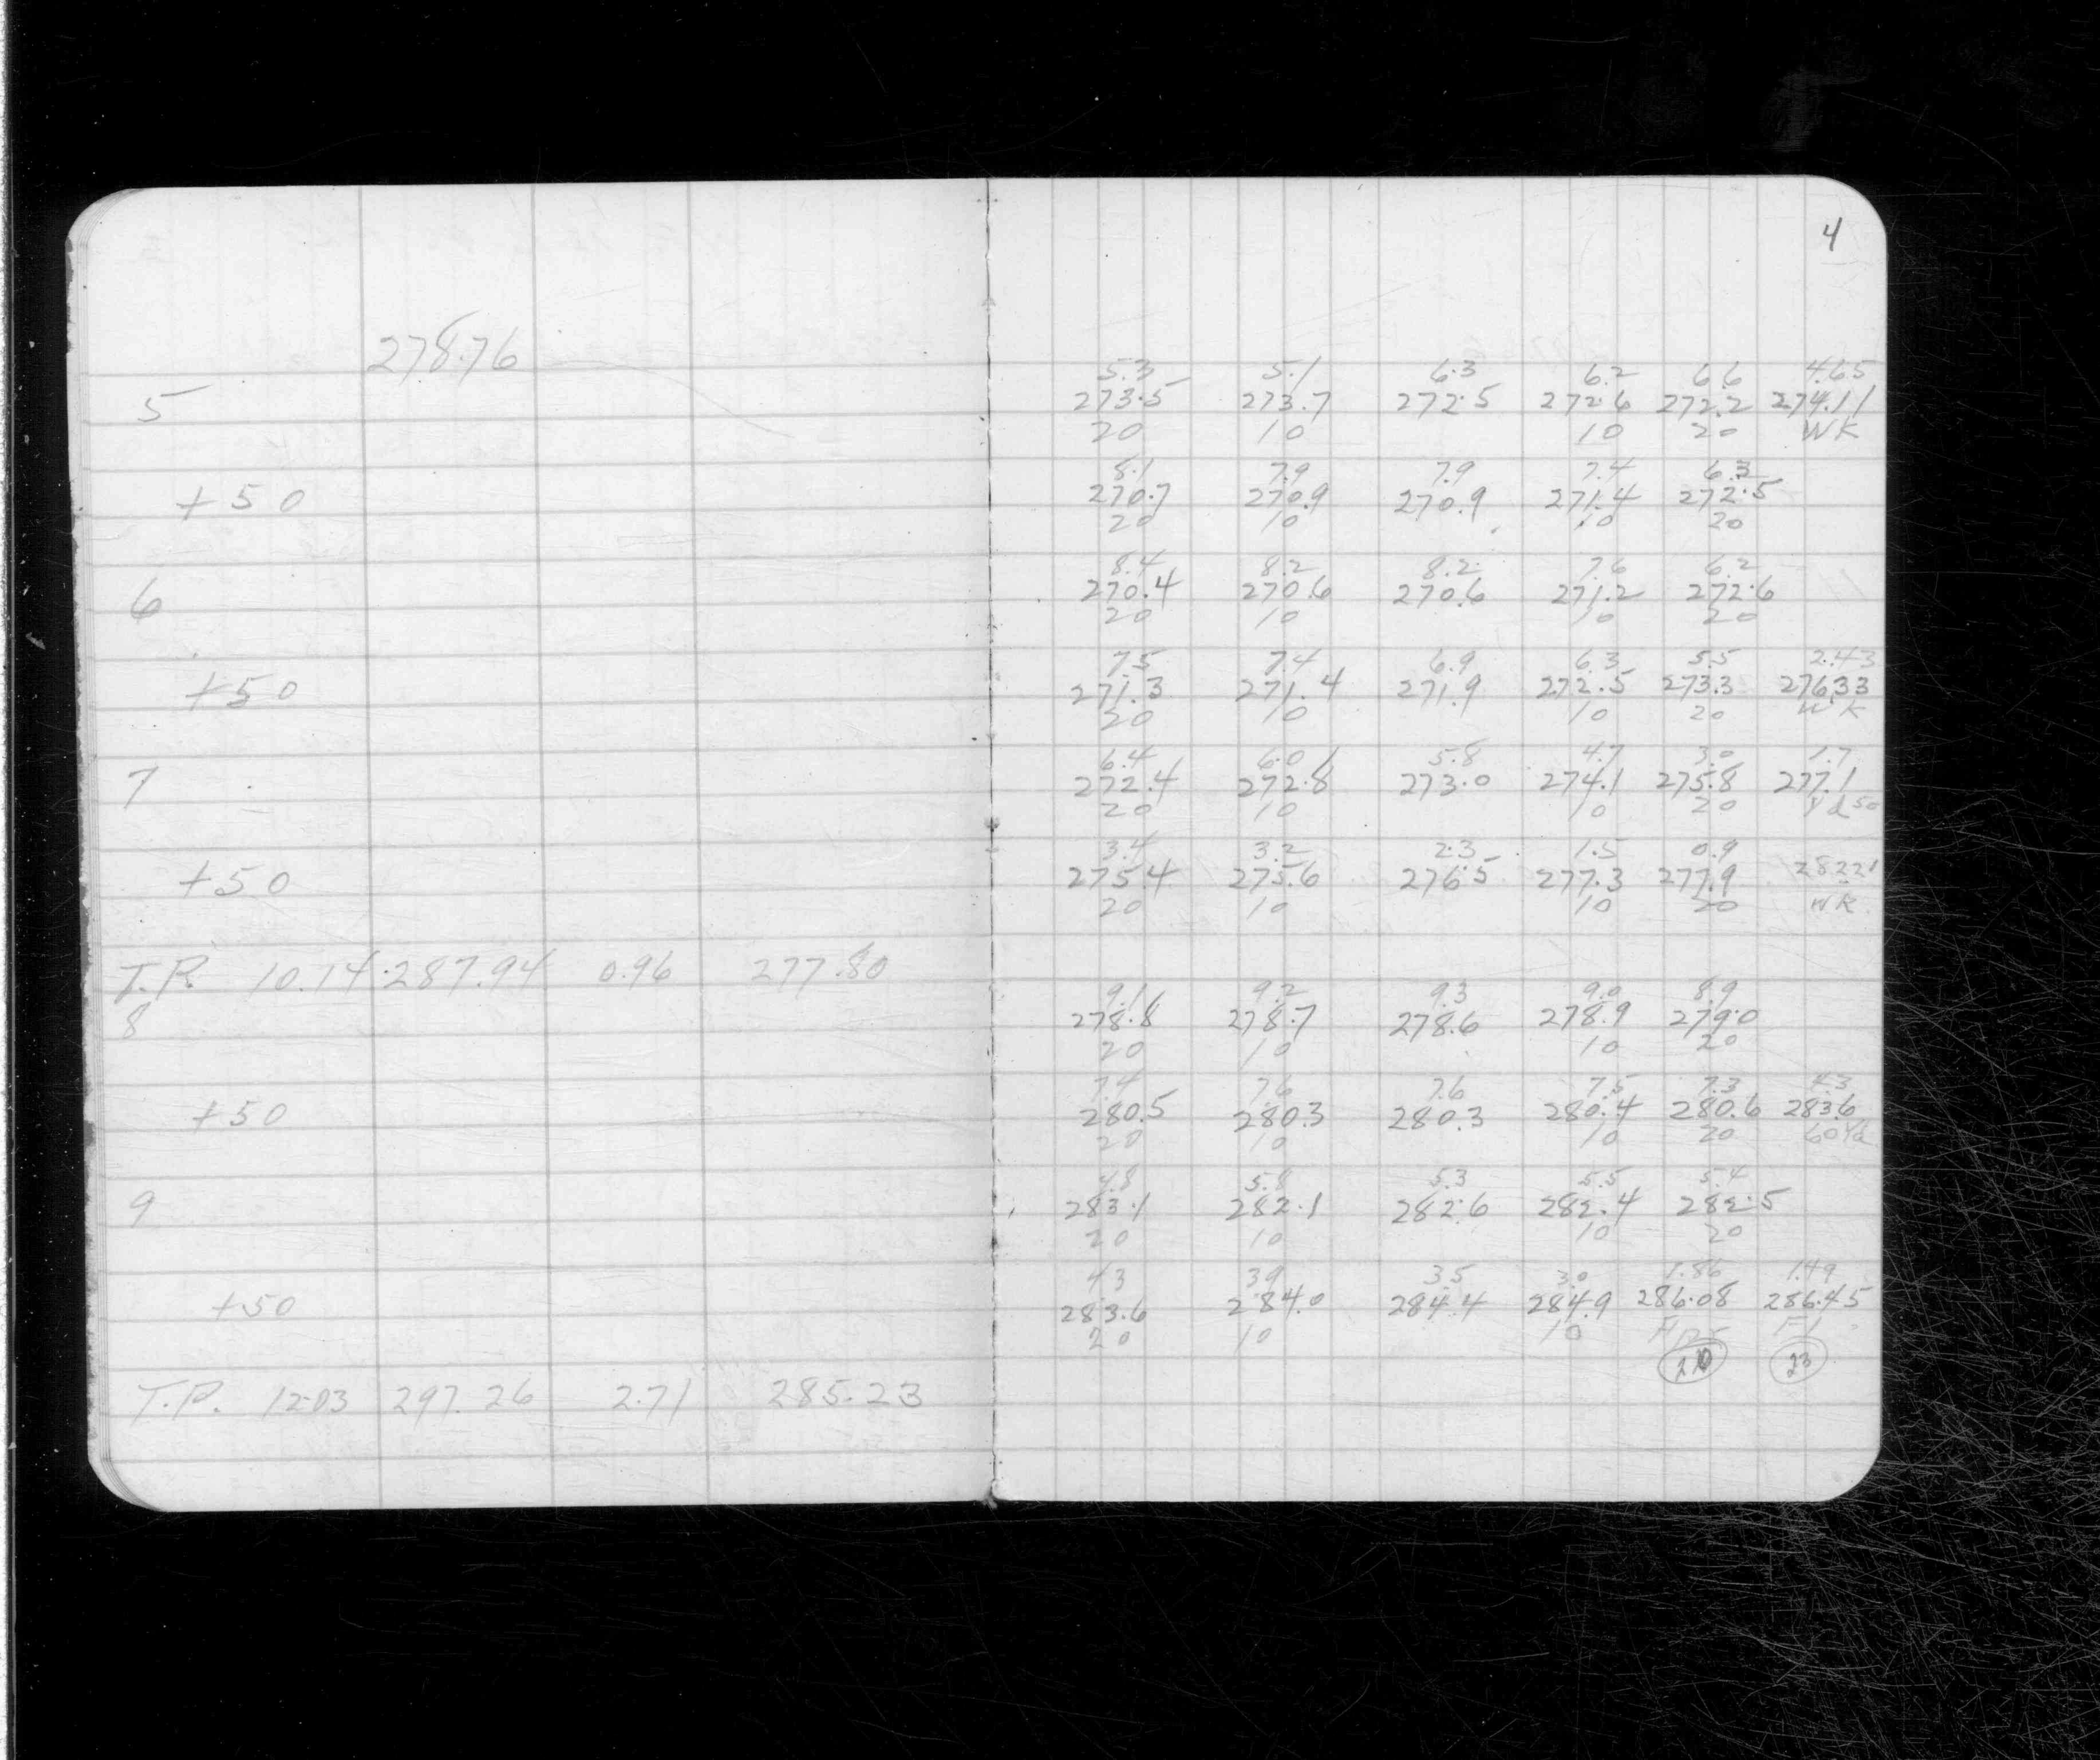 4
278.76
5.3 5.1 6.3 6.2 6.6 4.65
5 273.5 273.7 272.5 272.6 272.2 274.11
20 10 10 20 WK
8.1 7.9 7.9 7.4 6.3
+50 270.7 270.9 270.9 271.4 272.5
20 10 10 20
8.4 8.2 8.2 7.6 6.2
6 270.4 270.6 270.6 271.2 272.6
20 10 10 20
7.5 7.4 6.9 6.3 5.5 2.43
+50 271.3 271.4 271.9 272.5 273.3 276.33
20 10 10 20 WK
6.4 6.0 5.8 4.7 3.0 1.7
7 272.4 272.8 273.0 274.1 275.8 277.1
20 10 10 20 Yd 50
3.4 3.2 2.3 1.5 0.9
+50 275.4 275.6 276.5 277.3 277.9 282.21
20 10 10 20 WK
T.P. 10.14 287.94 0.96 277.80
9.1 9.2 9.3 9.0 8.9
8 278.8 278.7 278.6 278.9 279.0
20 10 10 20
7.4 7.6 7.6 7.5 7.3 4.3
+50 280.5 280.3 280.3 280.4 280.6 283.6
20 10 10 20 60 Yd
4.8 5.8 5.3 5.5 5.4
9 283.1 282.1 282.6 282.4 282.5
20 10 10 20
4.3 3.9 3.5 3.0 1.86 1.49
+50 283.6 284.0 284.4 284.9 286.08 286.45
20 10 10 Fl
23
T.P. 12.03 297.26 2.71 285.23